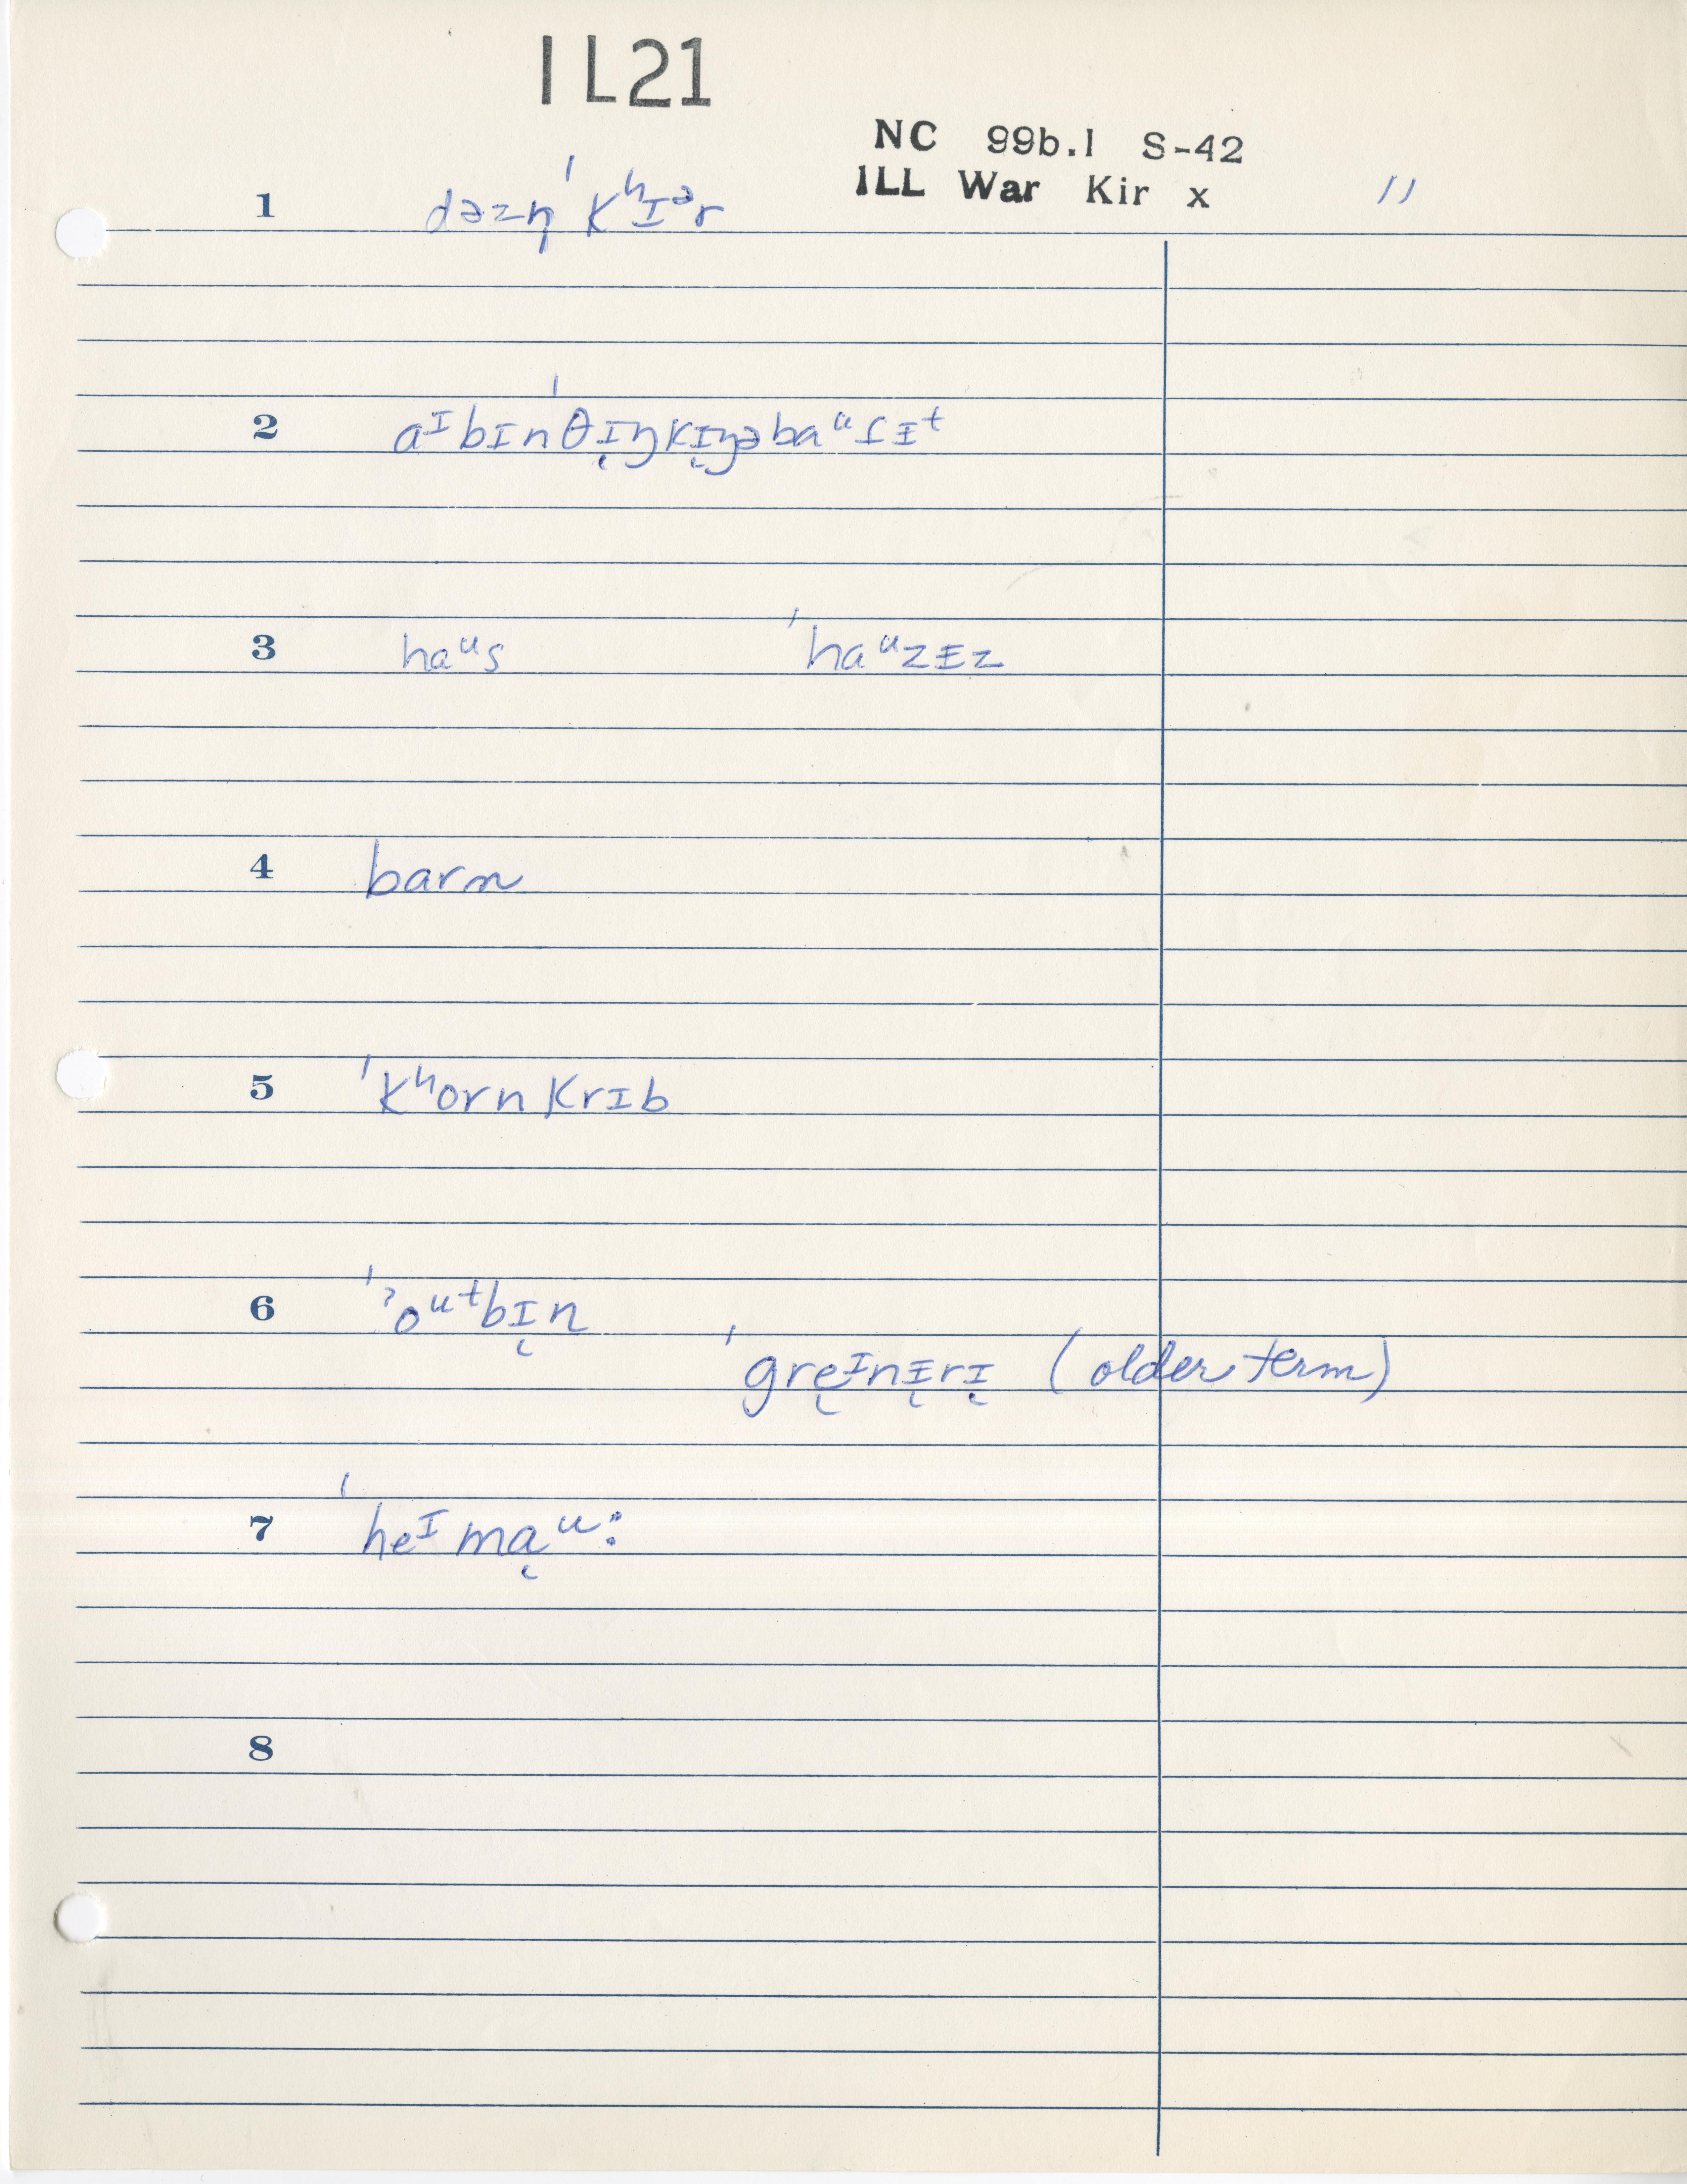 IL21
NC 99b.1 S-42
ILL War Kir x 11
1 dəzn̩ ˈkʰɪᵊr
2 aᶦbɪnˈθɪ̨ŋkɪ̨ŋəbaᵘɾɪᵗ
3 haᵘs ˈhaᵘzɪz
4 barn
5 ˈkʰornkrɪb
6 ˈˀoᵘᵗbɪ̨n
ˈgrę ᶦnɪ̨rɪ̨ (older term)
7 ˈheᶦmąᵘ:
8